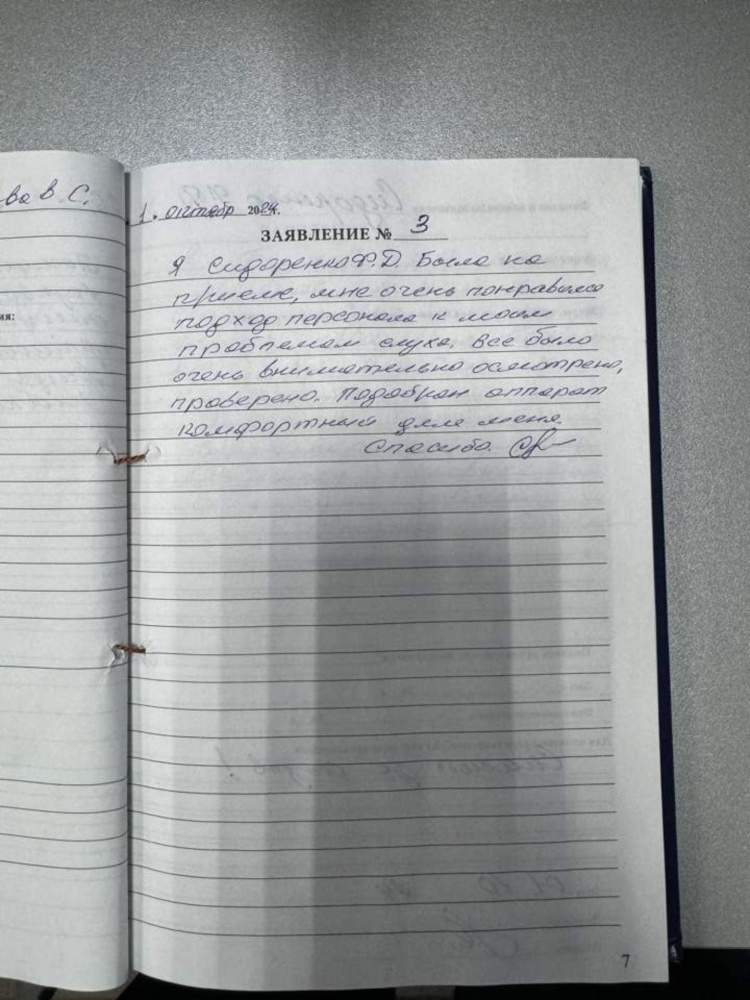 ва В. С.
ия:
1. октябр 2024г.
ЗАЯВЛЕНИЕ № 3
Я Сидоренко Ф.Д. Была на
приеме, мне очень понравился
подход персонала к моим
проблемам слуха, все было
очень внимательно осмотрено,
проверено. Подобран аппарат
комфортный для меня.
Спасибо.
7